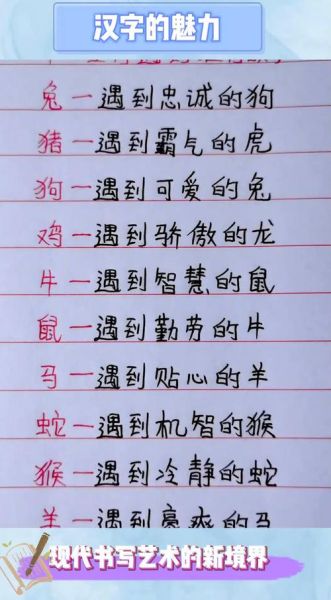 汉字的魅力
兔一遇到忠诚的狗
猪一遇到霸气的虎
狗一遇到可爱的兔
鸡一遇到骄傲的龙
牛一遇到智慧的鼠
鼠一遇到勤劳的牛
马一遇到贴心的羊
蛇一遇到机智的猴
猴一遇到冷静的蛇
羊一遇到豪爽的马
现代书写艺术的新境界